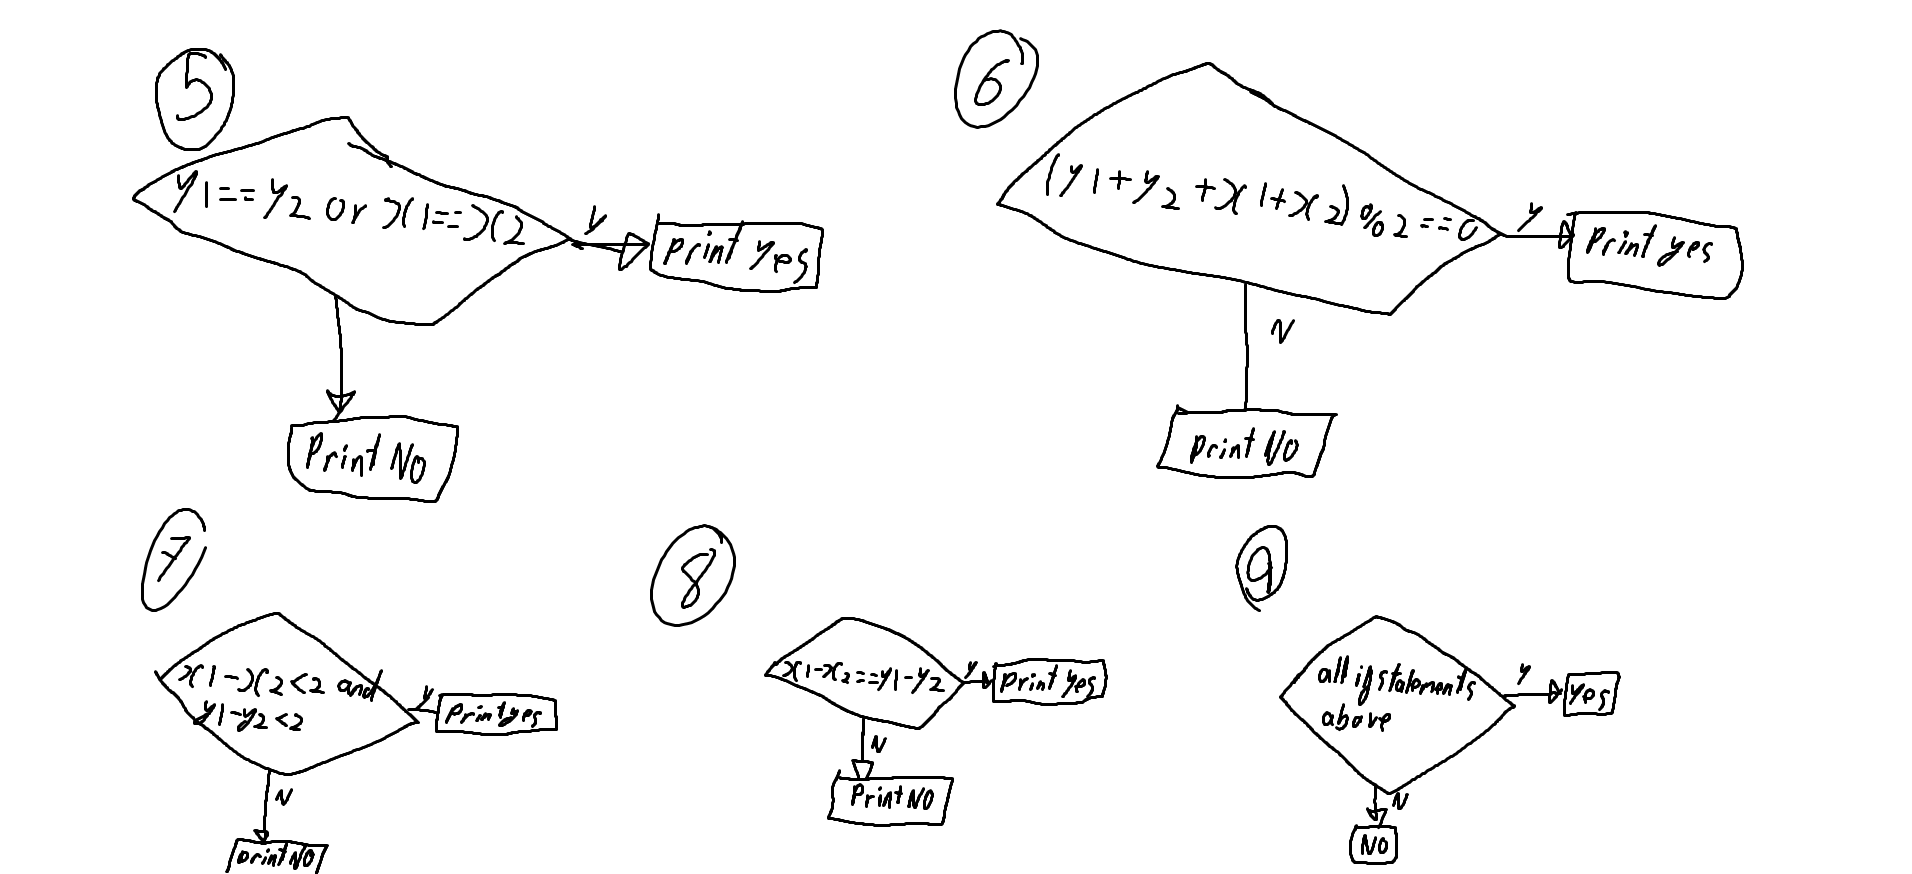 5
y1==y2 or x1==x2
Y
Print yes
Print No
6
(y1+y2+x1+x2)%2==0
Y
Print yes
N
Print No
7
x1-x2<2 and
y1-y2<2
Y
Print yes
N
print NO
8
x1-x2==y1-y2
Y
Print yes
N
Print NO
9
all if statements
above
Y
yes
N
NO